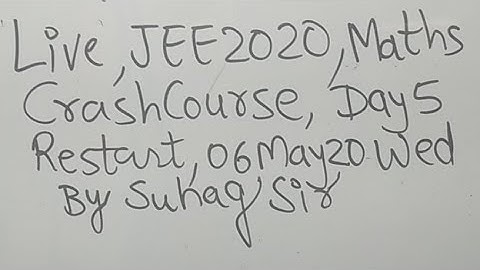 Live, JEE2020, Maths
CrashCourse, Day5
Restart, 06May20 Wed
By Suhag Sir